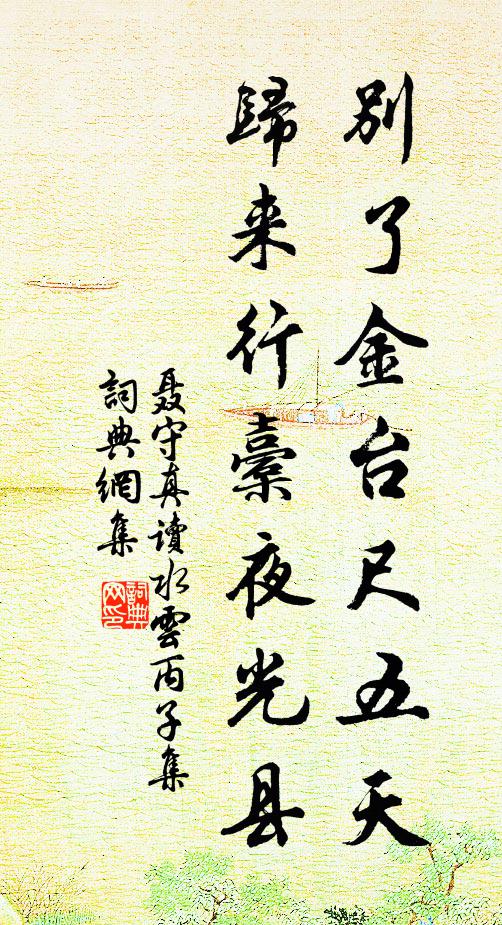 别了金台尺五天
歸来行橐夜光县
聂守真讀水雲丙子集
詞典網集
詞典
网印